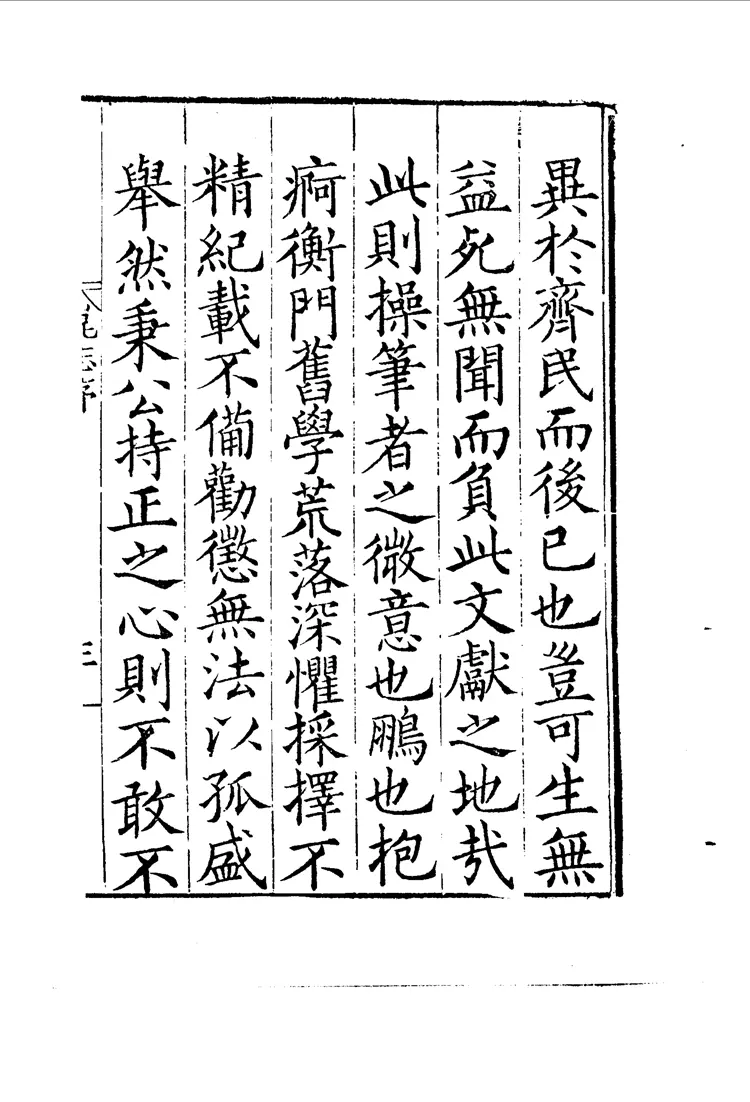 異於齊民而後已也豈可生無
益死無聞而負此文獻之地哉
此則操筆者之微意也鵬也抱
痾衡門舊學荒落深懼採擇不
精紀載不備勸懲無法以孤盛
舉然秉公持正之心則不敢不
志序
三